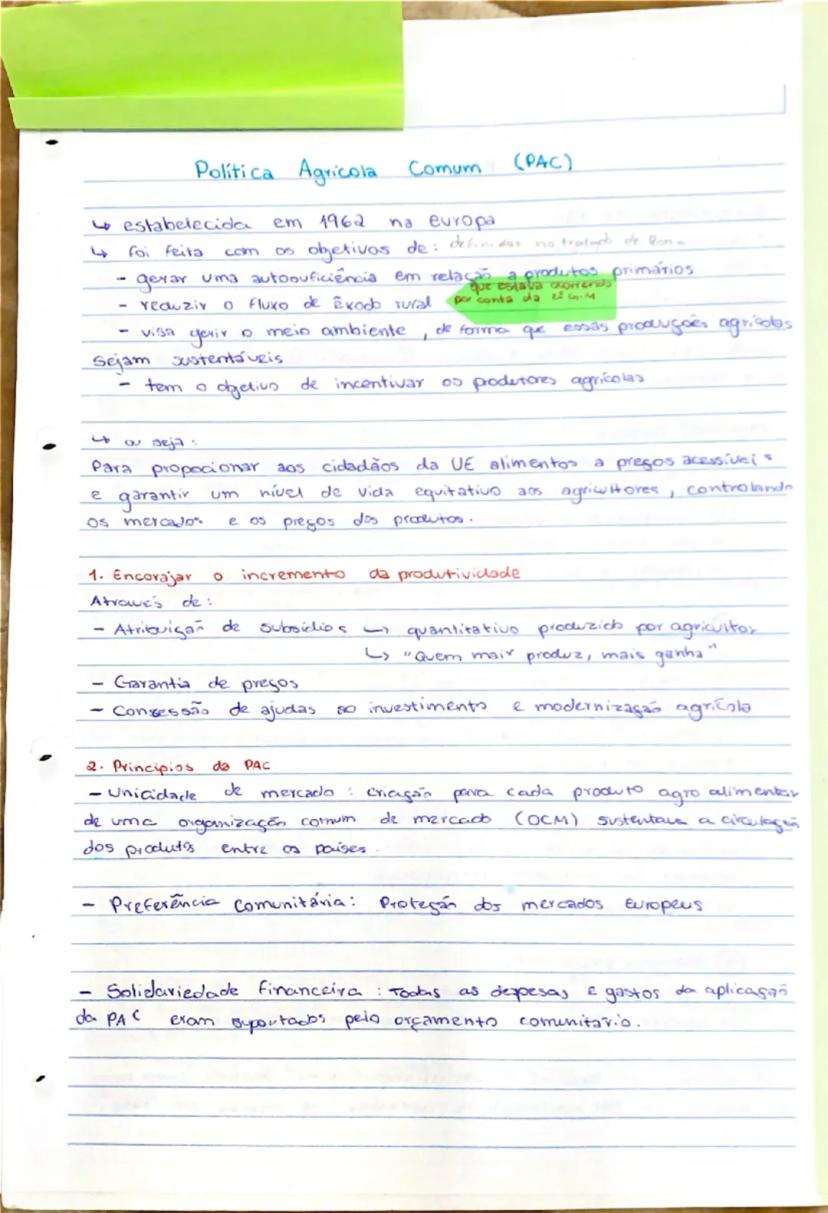 Política Agrícola Comum (PAC)
↳ estabelecida em 1962 na europa
↳ foi feita com os objetivos de: definidas no tratado de Roma
- gerar uma autosuficiência em relação a produtos primários
- reduzir o fluxo de êxodo rural
que estava ocorrendo
por conta da 2ª G.M
- visa gerir o meio ambiente, de forma que essas produções agrícolas
sejam sustentáveis
- tem o objetivo de incentivar os produtores agrícolas
↳ ou seja:
Para propocionar aos cidadãos da UE alimentos a preços acessíveis
e garantir um nível de vida equitativo aos agricultores, controlando
os mercados e os preços dos produtos.
1. Encorajar o incremento da produtividade
Através de:
- Atribuição de subsídios ↳ quantitativo produzido por agricultor
↳ "Quem mais produz, mais ganha"
- Garantia de preços
- Consessão de ajudas ao investimento e modernização agrícola
2. Princípios da PAC
- Unicidade de mercado: criação para cada produto agro alimentar
de uma organização comum de mercado (OCM) sustentava a circulação
dos produtos entre os países.
- Preferência comunitária: Proteção dos mercados Europeus
- Solidariedade financeira: Todas as despesas e gastos da aplicação
da PAC eram suportados pelo orçamento comunitário.